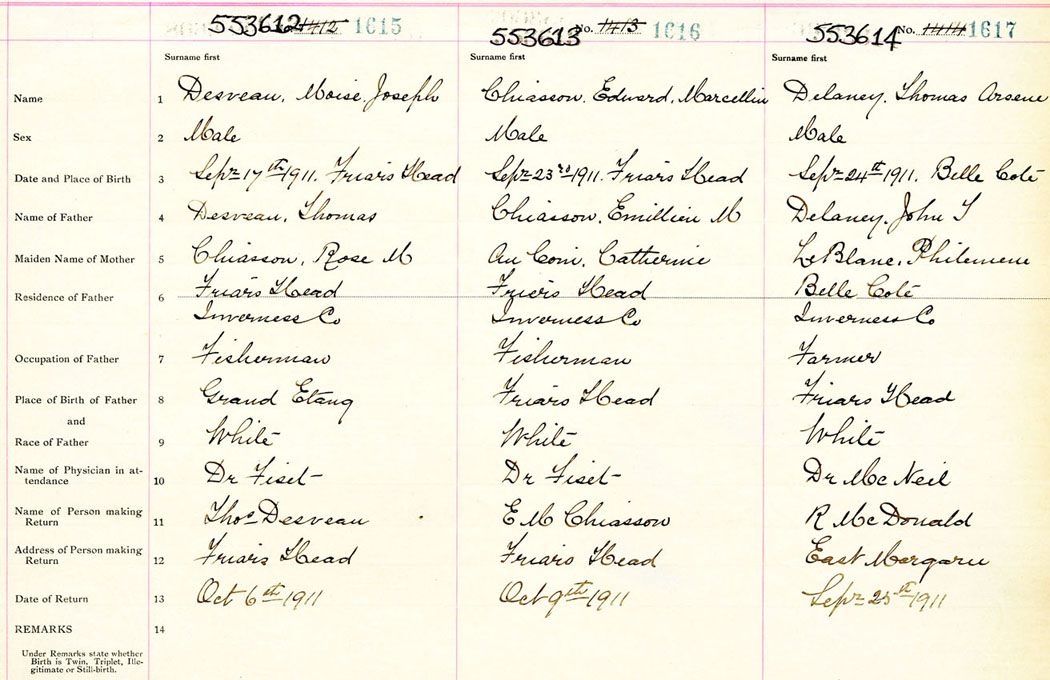 553612 1412 1615 553613 No. 1413 1616 553614 No. 1414 1617
Surname first Surname first Surname first
Name 1 Desveau, Moise Joseph Chiasson, Edward, Marcellin Delaney, Thomas Arsene
Sex 2 Male Male Male
Date and Place of Birth 3 Sepr 17th 1911. Friars Head Sepr 23rd 1911. Friars Head Sepr 24th 1911. Belle Coté
Name of Father 4 Desveau, Thomas Chiasson, Emillien M Delaney, John
Maiden Name of Mother 5 Chiasson, Rose M Au Coin, Catherine LeBlanc, Philemene
Residence of Father 6 Friars Head Friars Head Belle Coté
Inverness Co Inverness Co Inverness Co
Occupation of Father 7 Fisherman Fisherman Farmer
Place of Birth of Father 8 Grand Etang Friars Head Friars Head
and
Race of Father 9 White White White
Name of Physician in at-
tendance 10 Dr Fiset Dr Fiset Dr McNeil
Name of Person making
Return 11 Thos Desveau E M Chiasson R McDonald
Address of Person making
Return 12 Friars Head Friars Head East Margaree
Date of Return 13 Oct 6th 1911 Oct 9th 1911 Sepr 1911
REMARKS 14
Under Remarks state whether
Birth is Twin, Triplet, Ille-
gitimate or Still-birth.